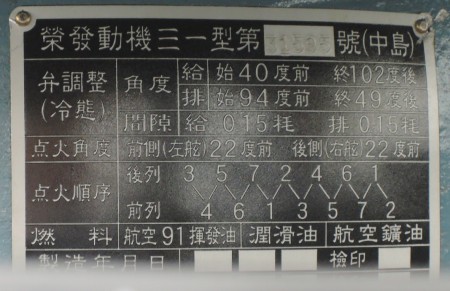 榮發動機三一型第 號(中島)
弁調整(冷態) 角度 給 始40度前 終102度後
排 始94度前 終49度後
間隙 給 0.15粍 排 0.15粍
点火角度 前側(左舷)22度前 後側(右舷)22度前
点火順序 後列 3 5 7 2 4 6 1
前列 4 6 1 3 5 7 2
燃料 航空91揮發油 潤滑油 航空鑛油
製造年月日 檢印